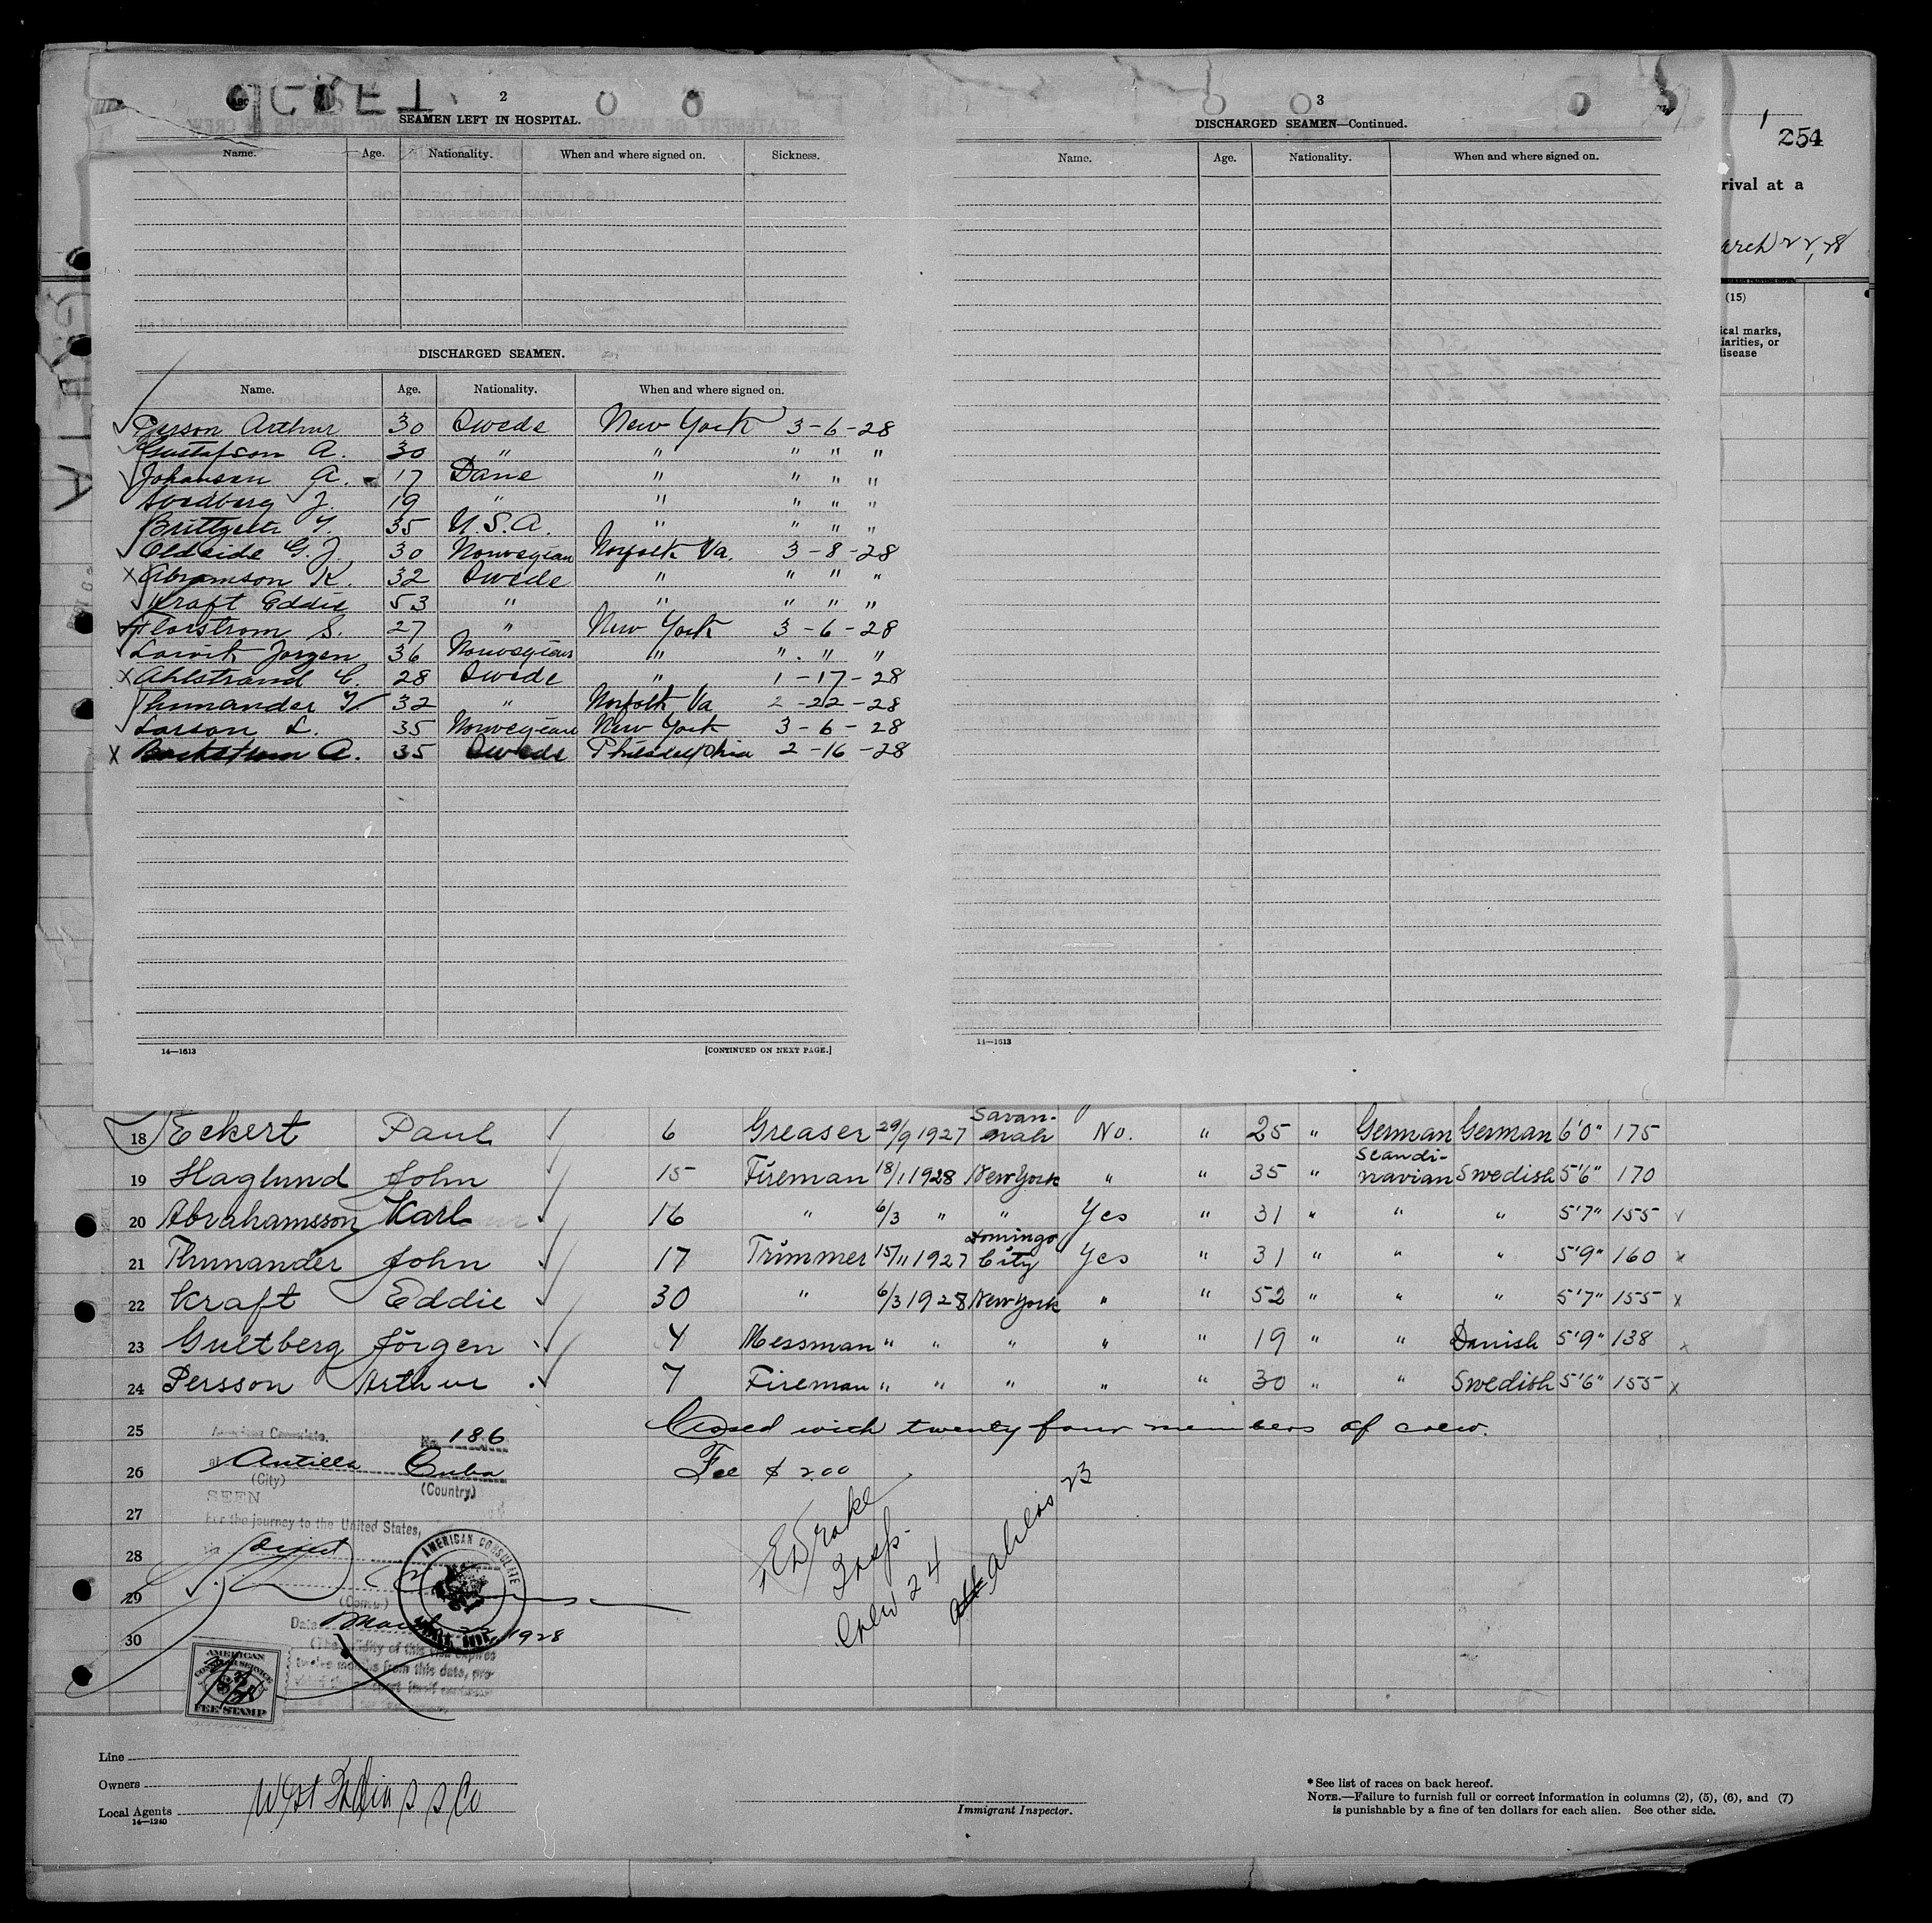 2
SEAMEN LEFT IN HOSPITAL.
Name. Age. Nationality. When and where signed on. Sickness.
DISCHARGED SEAMEN.
Name. Age. Nationality. When and where signed on.
Person Arthur 30 Swede New York 3-6-28
Gustafson A. 30 " " " " "
Johansen A. 17 Dane " " " "
J. 19 " " " " "
35 U.S.A. " " " "
G. J. 30 Norwegian Norfolk Va. 3-8-28
Abramson K. 32 Swede " " " "
Kraft Eddie 53 " " " " "
S. 27 " New York 3-6-28
Jorgen 36 Norwegian " " " "
Ahlstrand C. 28 Swede " 1-17-28
Thunander 32 " Norfolk, Va 2-22-28
Larson L. 35 Norwegian New York 3-6-28
A. 35 Swede Philadelphia 2-16-28
14—1613
[CONTINUED ON NEXT PAGE.]
3
DISCHARGED SEAMEN—Continued.
Name. Age. Nationality. When and where signed on.
14—1613
251
rival at a
arch 22, 28
(15)
ical marks,
iarities, or
disease
18 Eckert Paul 6 Greaser 29/9 1927 Savan-nah No. " 25 " German German 6'0" 175
19 Haglund John 15 Fireman 18/1 1928 New York " " 35 " Scandi-navian Swedish 5'6" 170
20 Abrahamsson Karl 16 " 6/3 " " Yes " 31 " " " 5'7" 155
21 Thunander John 17 Trimmer 15/11 1927 Domingo City Yes " 31 " " " 5'9" 160 x
22 Kraft Eddie 30 " 6/3 1928 New York " " 52 " " " 5'7" 155 x
23 Gultberg Jörgen 4 Messman " " " " " 19 " " Danish 5'9" 138 x
24 Persson Arthur 7 Fireman " " " " " 30 " " Swedish 5'6" 155 x
25 Closed with twenty four members of crew.
26 Fee $ 2.00
27
28
29
30
American Consulate,
No. 186
at Antilla Cuba
(City) (Country)
SEEN
For the journey to the United States,
(Consul)
AMERICAN CONSULATE
Date March 22, 1928
(The validity of this visa expires
twelve months from this date, pro-
AMERICAN
CONSULAR SERVICE
FEE STAMP
E Drake
Insp.
Crew 24
aliens 23
Line
Owners
Local Agents West India S S Co
14—1240
Immigrant Inspector.
* See list of races on back hereof.
NOTE.—Failure to furnish full or correct information in columns (2), (5), (6), and (7)
is punishable by a fine of ten dollars for each alien. See other side.